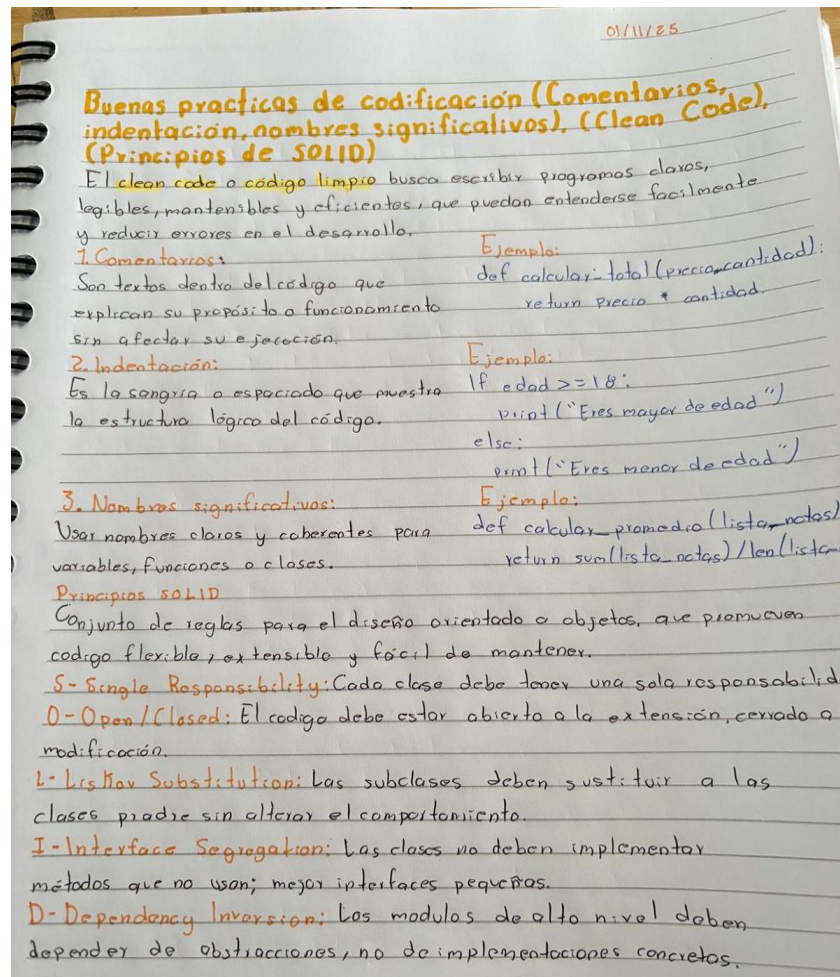 01/11/25
Buenas practicas de codificación (Comentarios,
indentación, nombres significativos), (Clean Code),
(Principios de SOLID)
El clean code o código limpio busca escribir programas claros,
legibles, mantenibles y eficientes, que puedan entenderse facilmente
y reducir errores en el desarrollo.
1. Comentarios:
Son textos dentro del código que
explican su propósito o funcionamiento
sin afectar su ejecución.
Ejemplo:
def calcular_total(precio, cantidad):
return precio * cantidad.
2. Indentación:
Es la sangría o espaciado que muestra
la estructura lógica del código.
Ejemplo:
If edad >= 18:
print ("Eres mayor de edad")
else:
print ("Eres menor de edad")
3. Nombres significativos:
Usar nombres claros y coherentes para
variables, funciones o clases.
Ejemplo:
def calcular_promedio (lista_notas)
return sum(lista_notas)/len(lista_
Principios SOLID
Conjunto de reglas para el diseño orientado a objetos, que promueven
codigo flexible, extensible y fácil de mantener.
S-Single Responsibility: Cada clase debe tener una sola responsabilid
O-Open/Closed: El codigo debe estar abierto a la extensión, cerrado a
modificación.
L-Liskov Substitution: Las subclases deben sustituir a las
clases pradre sin alterar el comportamiento.
I-Interface Segregation: Las clases no deben implementar
métodos que no usan; mejor interfaces pequeñas.
D-Dependency Inversion: Los modulos de alto nivel deben
depender de abstracciones, no de implementaciones concretas.